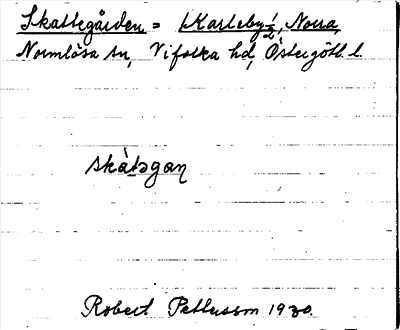 Skattegården = Karleby 1/2, Norra,
Normlösa sn, Vifolka hd, Östergötl. l.
skàtəgaɳ
Robert Pettersson 1930.